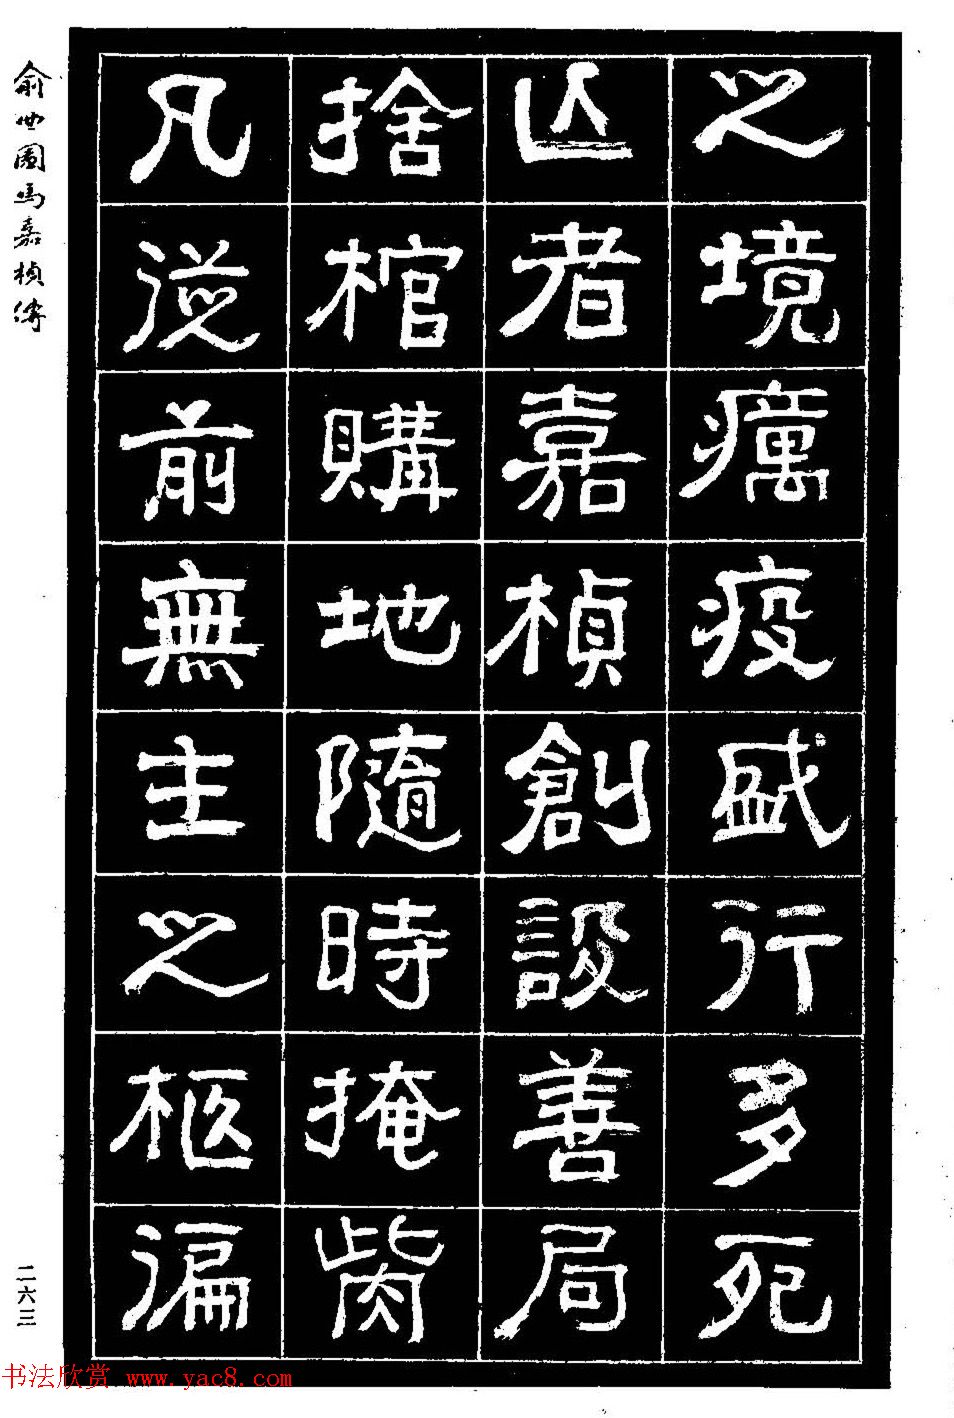 之境癘疫盛行多死
亾者嘉楨創設善局
捨棺購地隨時掩胔
凡從前無主之柩徧
俞曲園馮嘉楨傳
二六三
书法欣赏 www.yac8.com